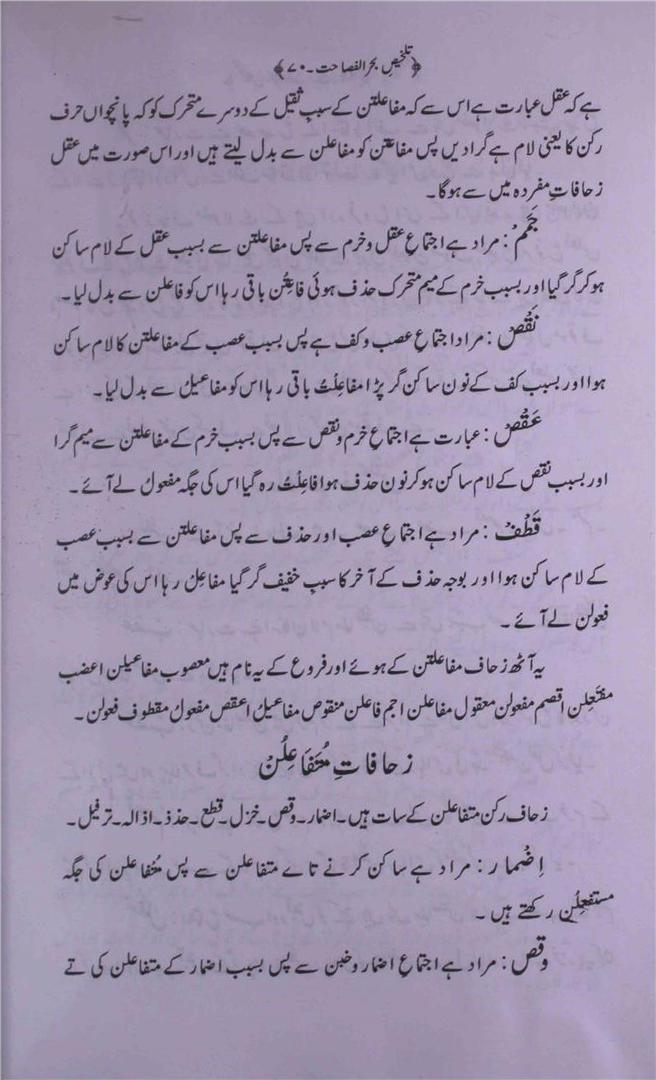 ﴿تلخیصِ بحرالفصاحت۔۷۰﴾
ہے کہ عقل عبارت ہے اس سے کہ مفاعلتن کے سبب ثقیل کے دوسرے متحرک کو کہ پانچواں حرف
رکن کا یعنی لام ہے گرا دیں پس مفاعتن کو مفاعلن سے بدل لیتے ہیں اور اس صورت میں عقل
زحافاتِ مفردہ میں سے ہوگا۔
جَمَمْ: مراد ہے اجتماعِ عقل و خرم سے پس مفاعلتن سے بسبب عقل کے لام ساکن
ہوکر گر گیا اور بسبب خرم کے میم متحرک حذف ہوئی فاعتُن باقی رہا اس کو فاعلن سے بدل لیا۔
نَقْصْ: مراد اجتماعِ عصب و کف ہے پس بسبب عصب کے مفاعلتن کا لام ساکن
ہوا اور بسبب کف کے نون ساکن گر پڑا مفاعلْتُ باقی رہا اس کو مفاعیلُ سے بدل لیا۔
عَقْصْ: عبارت ہے اجتماعِ خرم و نقص سے پس بسبب خرم کے مفاعلتن سے میم گرا
اور بسبب نقص کے لام ساکن ہوکر نون حذف ہوا فاعلْتُ رہ گیا اس کی جگہ مفعولُ لے آئے۔
قَطْفْ: مراد ہے اجتماعِ عصب اور حذف سے پس مفاعلتن سے بسبب عصب
کے لام ساکن ہوا اور بوجہ حذف کے آخر کا سببِ خفیف گر گیا مفاعِلْ رہا اس کی عوض میں
فعولن لے آئے۔
یہ آٹھ زحاف مفاعلتن کے ہوئے اور فروع کے یہ نام ہیں معصوب مفاعیلن اعضب
مفتَعِلن اقصم مفعولن معقول مفاعلن اجم فاعلن منقوص مفاعیلُ اعقص مفعولُ مقطوف فعولن۔
زحافاتِ مُتَفاعِلُنْ
زحاف رکن متفاعلن کے سات ہیں۔اضمار۔وقص۔خزل۔قطع۔حذذ۔اذالہ۔ترفیل۔
اِضْمار: مراد ہے ساکن کرنے تاے متفاعلن سے پس مُتْفاعلن کی جگہ
مستفعِلن رکھتے ہیں۔
وقص: مراد ہے اجتماعِ اضمار و خبن سے پس بسبب اضمار کے متفاعلن کی تے